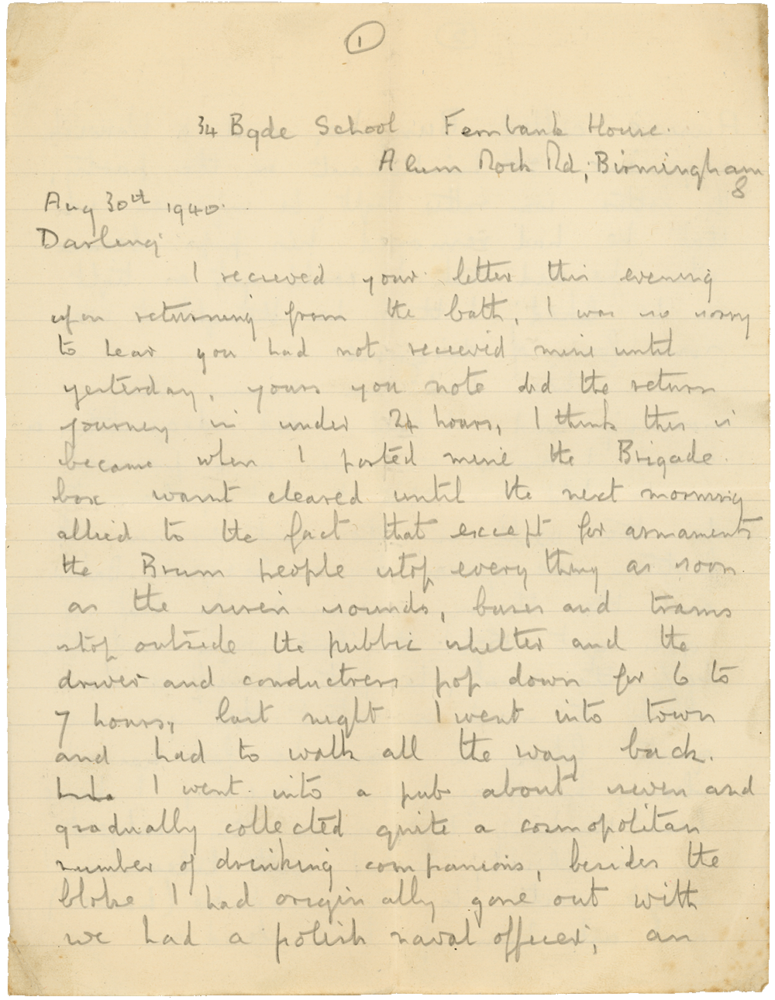 1
34 Bgde School Fernbank House.
Alum Rock Rd, Birmingham
8
Aug 30th 1940.
Darling
I recieved your letter this evening
upon returning from the bath, I was so sorry
to hear you had not recieved mine until
yesterday, yours you note did the return
journey in under 24 hours, I think this is
because when I posted mine the Brigade
box wasnt cleared until the next morning
allied to the fact that except for armaments
the Brum people stop every thing as soon
as the siren sounds, buses and trams
stop outside the public shelter and the
driver and conductress pop down for 6 to
7 hours, last night I went into town
and had to walk all the way back.
I went into a pub about seven and
gradually collected quite a cosmopolitan
number of drinking companions, besides the
bloke I had originally gone out with
we had a polish naval officer, an